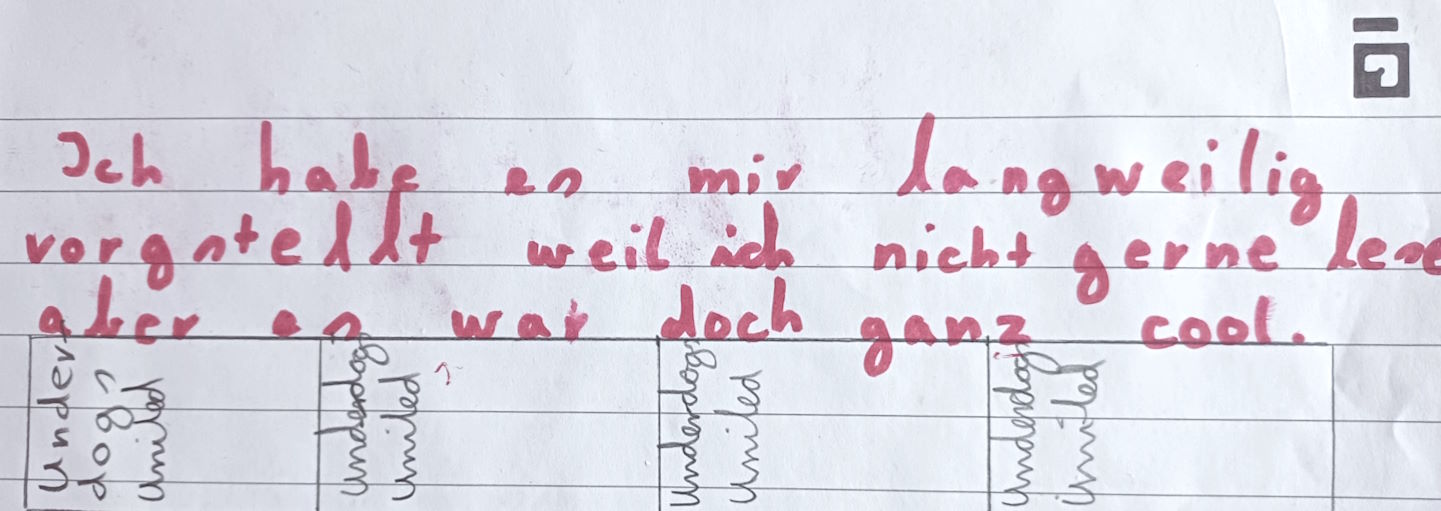 Ich habe es mir langweilig
vorgstellt weil ich nicht gerne lese
aber es war doch ganz cool.
Underdogs United
Underdogs United
Underdogs United
Underdogs United